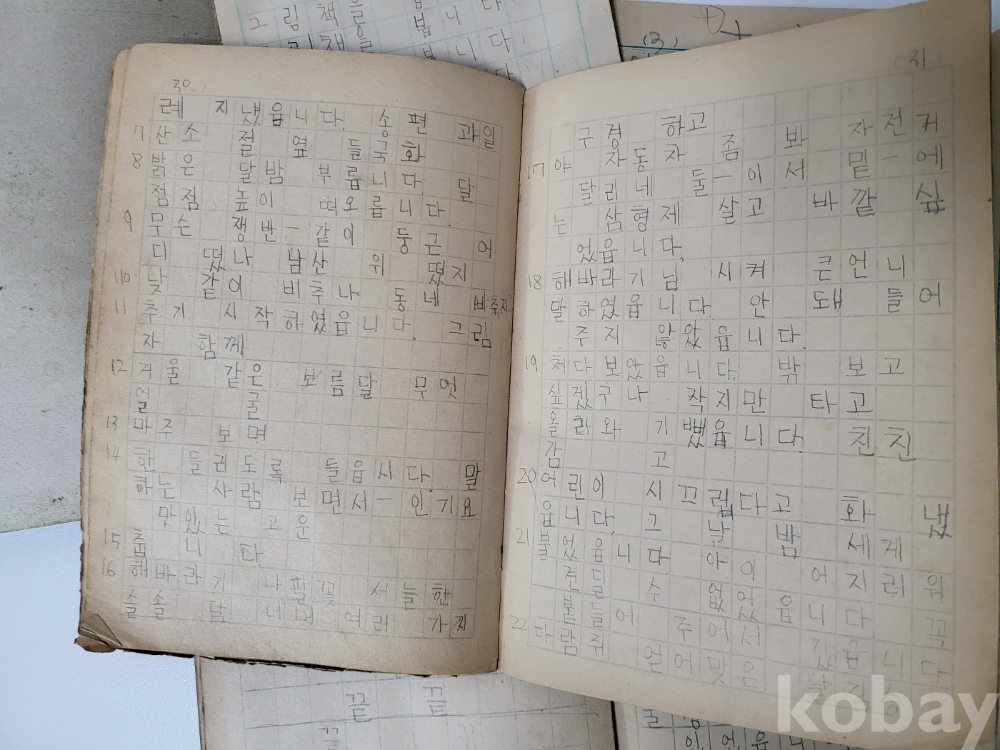 그림책을
봅니다.
30
레 지냈읍니다. 송편 과일
7 산소 절 옆 들국화
8 밝은 달밤 부릅니다. 달
점점 높이 떠오릅니다
9 무슨 쟁반-같이 둥근 어
디 떴나 남산 위 떴지
10 낮 같이 비추나 동네 비축지
11 추기 시작하였읍니다. 그림
자 함께
12 거울 같은 보름달 무엇
일 굴
13 마주 보며
14 한 들리도록 들읍시다. 말
하는 사람 보면서-인기요
맛있는 고운
15 춥니다
16 해바라기 나팔꽃 서늘한
솔솔 담 너머 여러 가지
31
구경 하고
좀 봐 자전거
17 야 자동차 둘-이서 밑-에
달리네 살고 바깥 싶
는 삼형제
었읍니다.
18 해바라기님 시켜 큰언니
말하였읍니다. 안 돼 들어
주지 않았읍니다.
19 쳐다보았읍니다. 밖 보고
싶겠구나 작지만 타고
올라와 기뻤읍니다. 친친
감 고
20 어린이 시끄럽다고 화 냈
읍니다. 그 날 밤 세게
21 불었읍니다 아이 어지러워
견딜 수 없었읍니다. 꼭
붙들어 주어서
22 다람쥐 언어맞은
끝 끝
끝
kobay